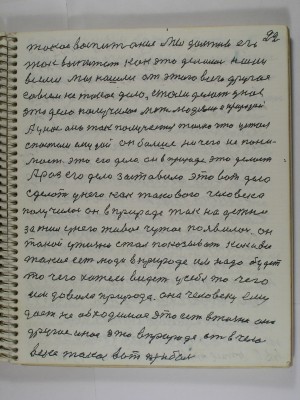 22
такое воспитание Мы должны его
так воспитат как это делали наши
всеми мы нашли от этого всего другая
совсем не такое дело, стали делит у нас
это дело получилос между людми и природой
А у нас оно так получено только это
он больше ни чего не пони
мает. это его дела он в природе это делает
А раз его дело заставило это вот дело
сделат у него как такового человека
получилос он в природе так на этом
за ним у него живое чутое появилос он
такой стал показыват как
такие ест люди в природе им надо будет
то чего хотелос видет у себя то чего
им довала природа. она человеку ему
дает не обходимая это ест в жизне оно
другие иное это в природе. от в чело
веке такое вот прибыл